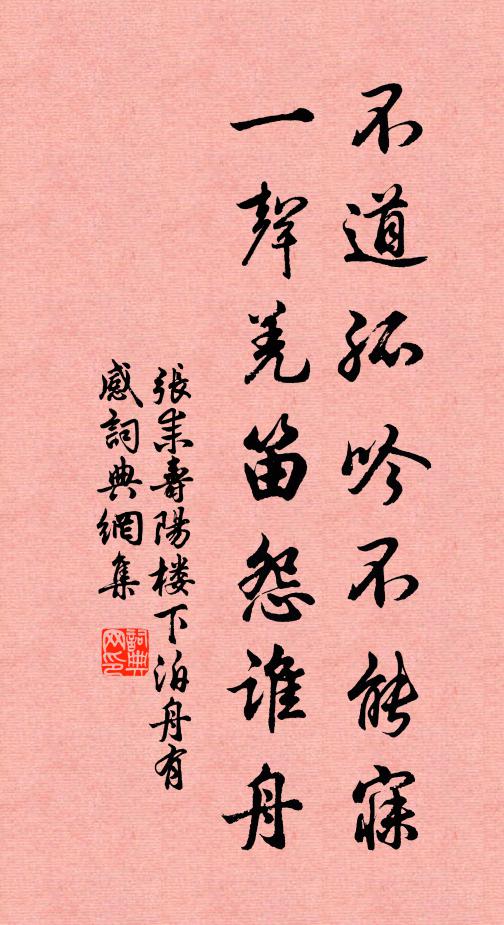 不道孤吟不能寐
一聲羌笛怨誰舟
張耒壽陽楼下泊舟有
感詞典網集
詞典
网印